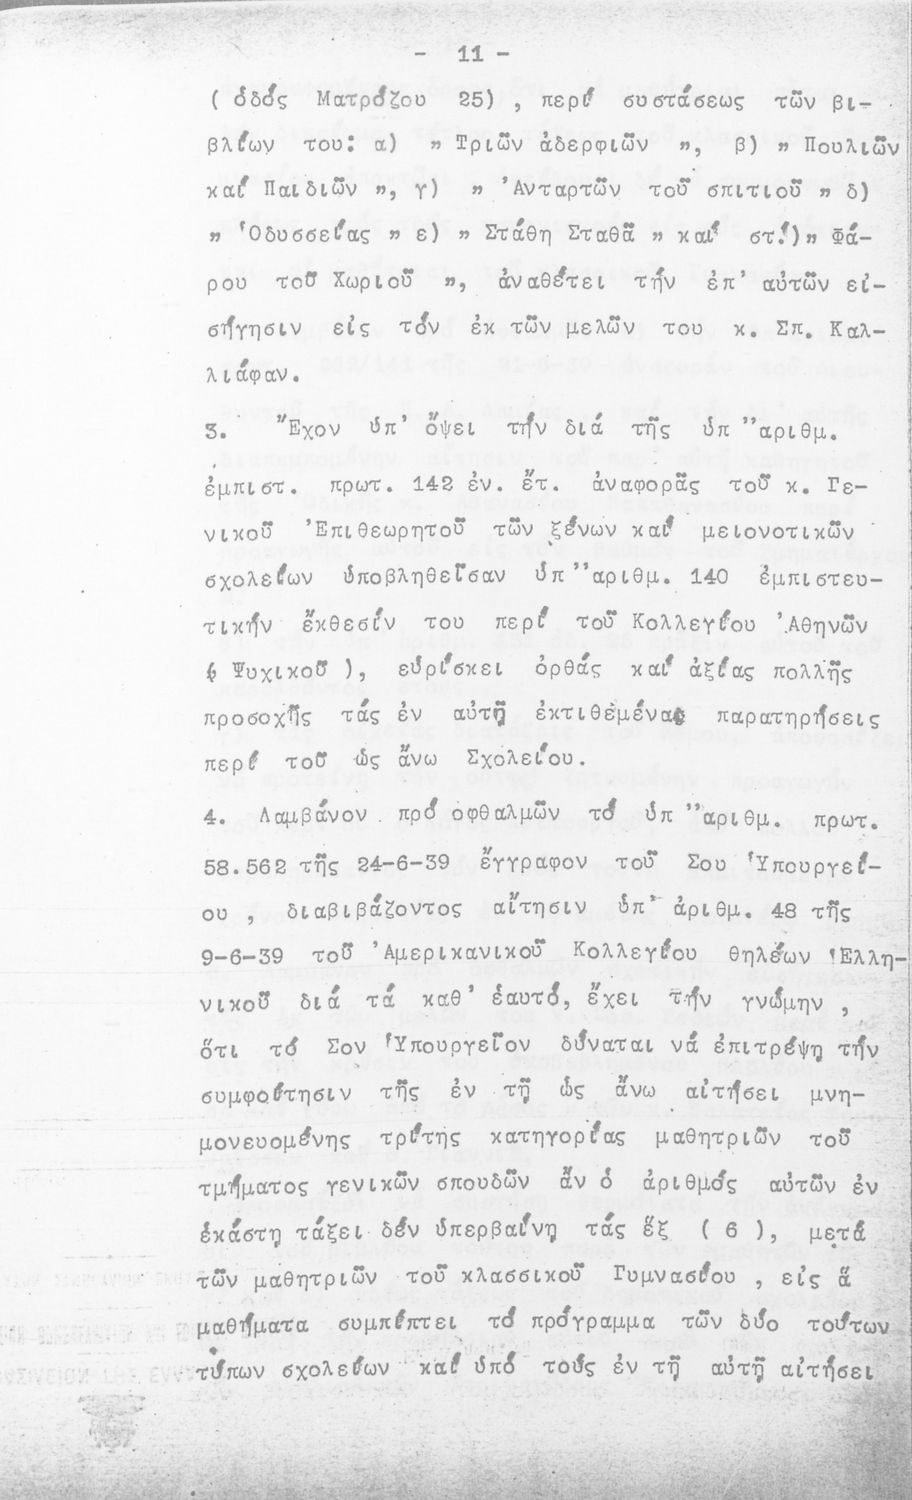 - 11 -
( ὁδός Ματρόζου 25) , περί συστάσεως τῶν βι-
βλίων του: α) " Τριῶν ἀδερφιῶν ", β) " Πουλιῶν
καί Παιδιῶν ", γ) " Ἀνταρτῶν τοῦ σπιτιοῦ " δ)
" Ὀδυσσείας " ε) " Στάθη Σταθᾶ " καί στ.)" Φά-
ρου τοῦ Χωριοῦ ", ἀναθέτει τήν ἐπ' αὐτῶν εἰ-
σήγησιν εἰς τόν ἐκ τῶν μελῶν του κ. Σπ. Καλ-
λιάφαν.
3. Ἔχον ὑπ' ὄψει τήν διά τῆς ὑπ "αριθμ.
ἐμπιστ. πρωτ. 142 ἐν. ἔτ. ἀναφορᾶς τοῦ κ. Γε-
νικοῦ Ἐπιθεωρητοῦ τῶν ξένων καί μειονοτικῶν
σχολείων ὑποβληθεῖσαν ὑπ "αριθμ. 140 ἐμπιστευ-
τικήν ἔκθεσίν του περί τοῦ Κολλεγίου Ἀθηνῶν
( Ψυχικοῦ ), εὑρίσκει ὀρθάς καί ἀξίας πολλῆς
προσοχῆς τάς ἐν αὐτῇ ἐκτιθεμένας παρατηρήσεις
περί τοῦ ὡς ἄνω Σχολείου.
4. Λαμβάνον πρό οφθαλμῶν τό ὑπ "αριθμ. πρωτ.
58.562 τῆς 24-6-39 ἔγγραφον τοῦ Σου Ὑπουργεί-
ου , διαβιβάζοντος αἴτησιν ὑπ' ἀριθμ. 48 τῆς
9-6-39 τοῦ Ἀμερικανικοῦ Κολλεγίου θηλέων Ἑλλη-
νικοῦ διά τά καθ' ἑαυτό, ἔχει τήν γνώμην ,
ὅτι τό Σον Ὑπουργεῖον δύναται νά ἐπιτρέψῃ τήν
συμφοίτησιν τῆς ἐν τῇ ὡς ἄνω αἰτήσει μνη-
μονευομένης τρίτης κατηγορίας μαθητριῶν τοῦ
τμήματος γενικῶν σπουδῶν ἄν ὁ ἀριθμός αὐτῶν ἐν
ἑκάστῃ τάξει δέν ὑπερβαίνῃ τάς ἕξ ( 6 ), μετά
τῶν μαθητριῶν τοῦ κλασσικοῦ Γυμνασίου , εἰς ἅ
μαθήματα συμπίπτει τό πρόγραμμα τῶν δύο τούτων
τύπων σχολείων καί ὑπό τούς ἐν τῇ αὐτῇ αἰτήσει